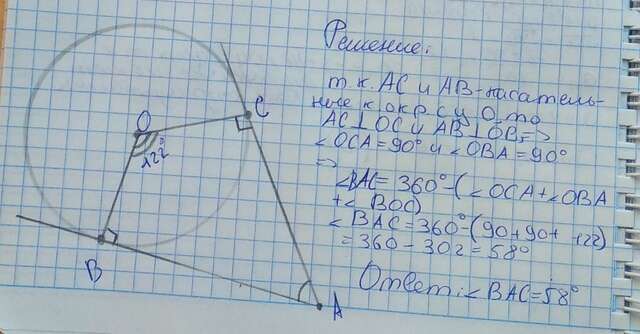 Решение:
т.к. AC и AB - касатель-
ные к окр с ц O, то
AC ⊥ OC и AB ⊥ OB, =>
∠OCA = 90° и ∠OBA = 90°
=>
∠BAC = 360° - (∠OCA + ∠OBA
+ ∠BOC)
∠BAC = 360° - (90 + 90 + 122)
= 360 - 302 = 58°
Ответ: ∠BAC = 58°
O
C
122°
B
A